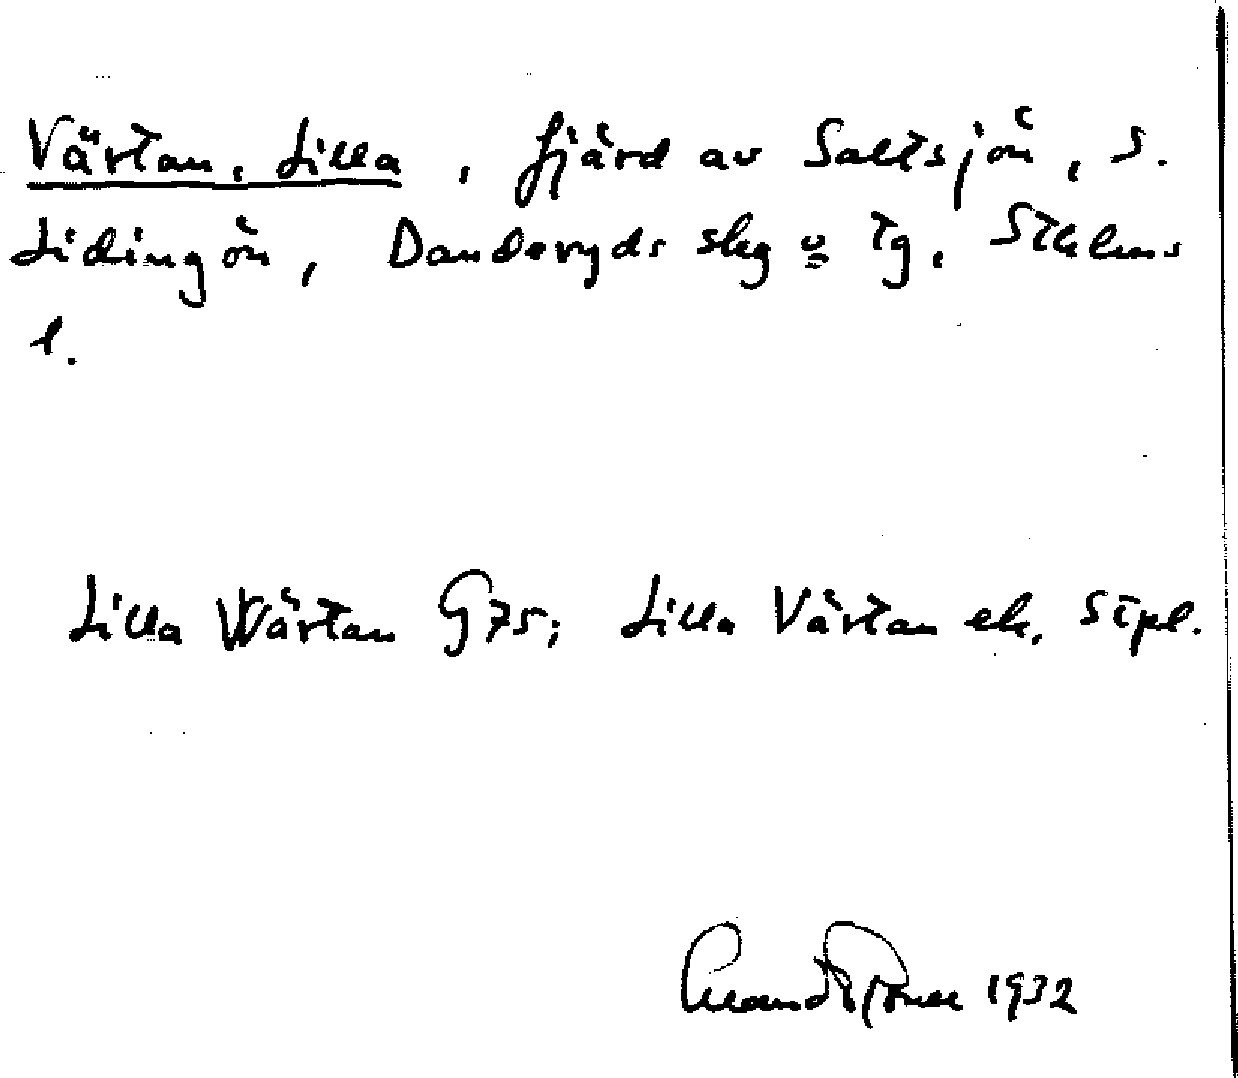 Värtan, Lilla, fjärd av Saltsjön, S.
Lidingön, Danderyds skg o Tg, Sthlms
l.
Lilla Wärtan G 75; Lilla Värtan ek. stpl.
1932